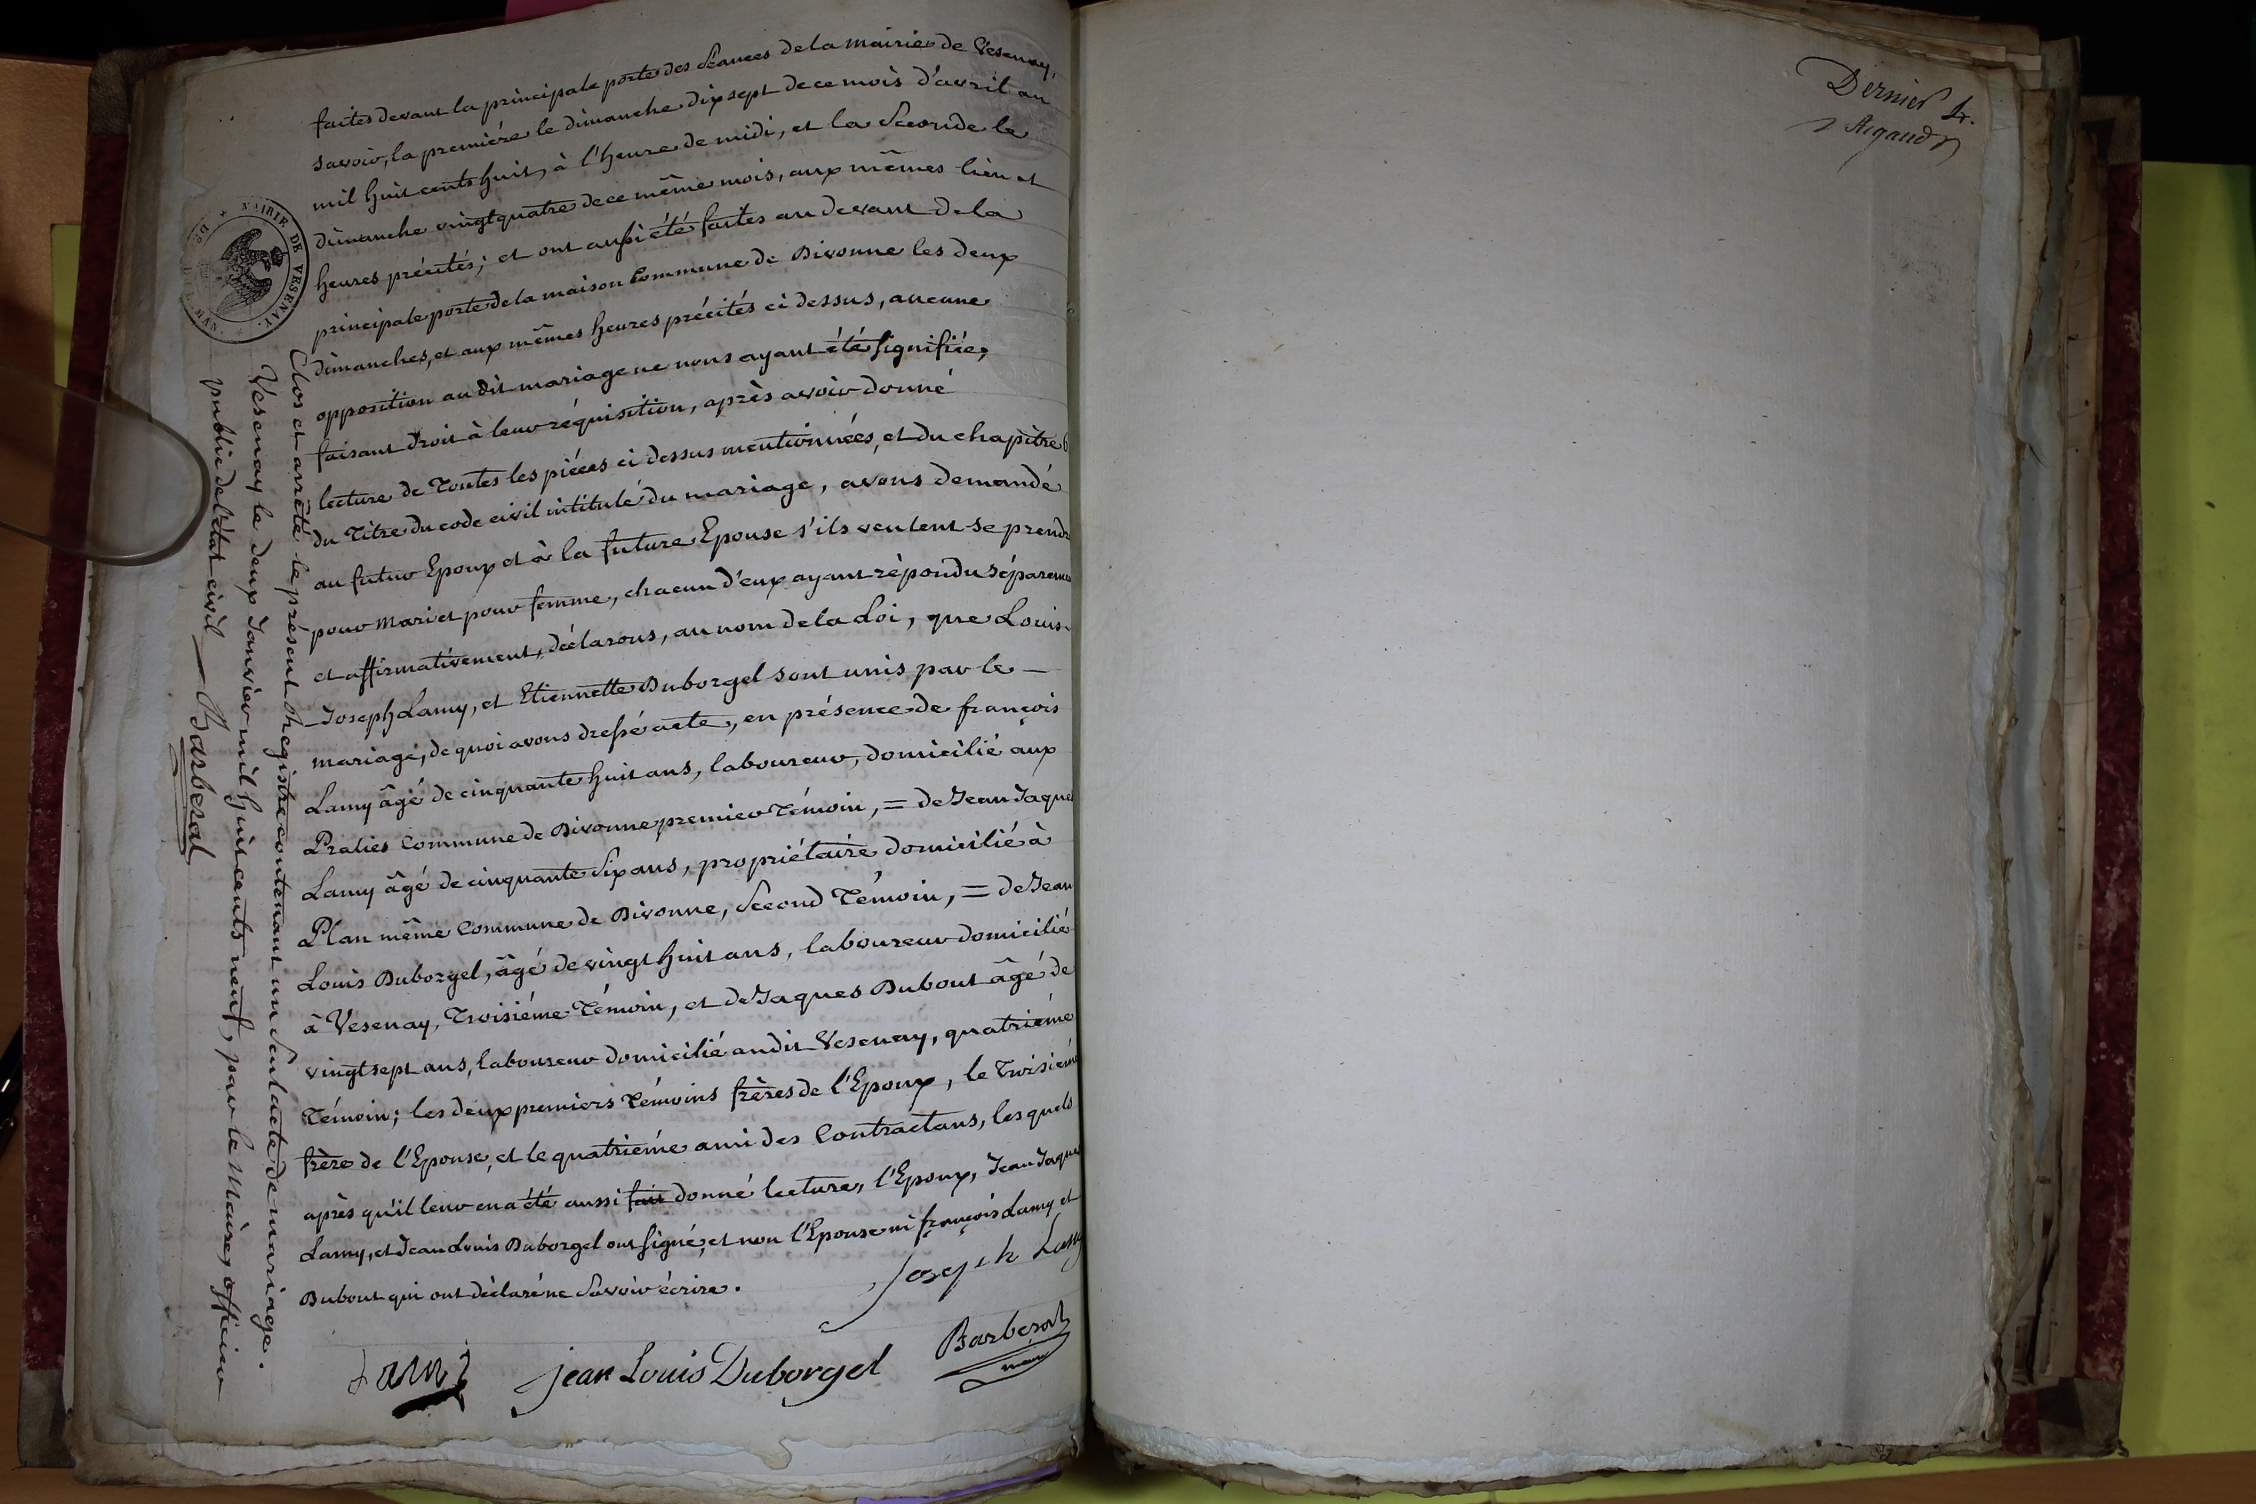 faites devant la principale porte des séances de la mairie de Vesenay,
savoir, la première le dimanche dix sept de ce mois d'avril an
mil huit cents huit, à l'heure de midi, et la seconde le
dimanche vingt quatre de ce même mois, aux mêmes lieu et
heures précités; et ont aussi été faites au devant de la
principale porte de la maison Commune de Divonne les deux
dimanches, et aux mêmes heures précités ci dessus, aucune
opposition au dit mariage ne nous ayant été signifiée,
faisant droit à leur réquisition, après avoir donné
lecture de Toutes les pièces ci dessus mentionnées, et du chapître 6
du Titre du code civil intitulé du mariage, avons demandé
au futur Epoux et à la future Epouse s'ils veulent se prendr
pour mari et pour femme, chacun d'eux ayant répondu séparemen
et affirmativement, déclarons, au nom de la Loi, que Louis
Joseph Lamy, et Etiennette Duborgel sont unis par le —
mariage, de quoi avons dressé acte, en présence de françois
Lamy âgé de cinquante huit ans, laboureur, domicilié aux
Pralies Commune de Divonne premier Témoin, = de Jean Jaque
Lamy âgé de cinquante six ans, propriétaire domicilié à
Plan même Commune de Divonne, second Témoin, = de Jean
Louis Duborgel, âgé de vingt huit ans, laboureur domicilié
à Vesenay, Troisiéme Témoin, et de Jaques Dubout âgé de
vingt sept ans, laboureur domicilié au dit Vesenay, quatriéme
Témoin; les deux premiers Témoins frères de l'Epoux, le Troisiém
frère de l'Epouse, et le quatriéme ami des Contractans, lesquels
après qu'il leur en a été aussi fait donné lecture, l'Epoux, Jean Jaque
Lamy, et Jean Louis Duborgel ont signé, et non l'Epouse ni françois Lamy et
Dubout qui ont déclaré ne savoir écrire.
Joseph Lamy
Lamy
jean Louis Duborgel
Barberat
maire
MAIRIE DE VERSENAY.
Clos et arrêté le présent Registre contenant un seul acte de mariage.
Vésenay le deux Janvier mil huit cents neuf, par le Maire, officier
public de l'État civil — Barberat
Dernier f.
Rigaud